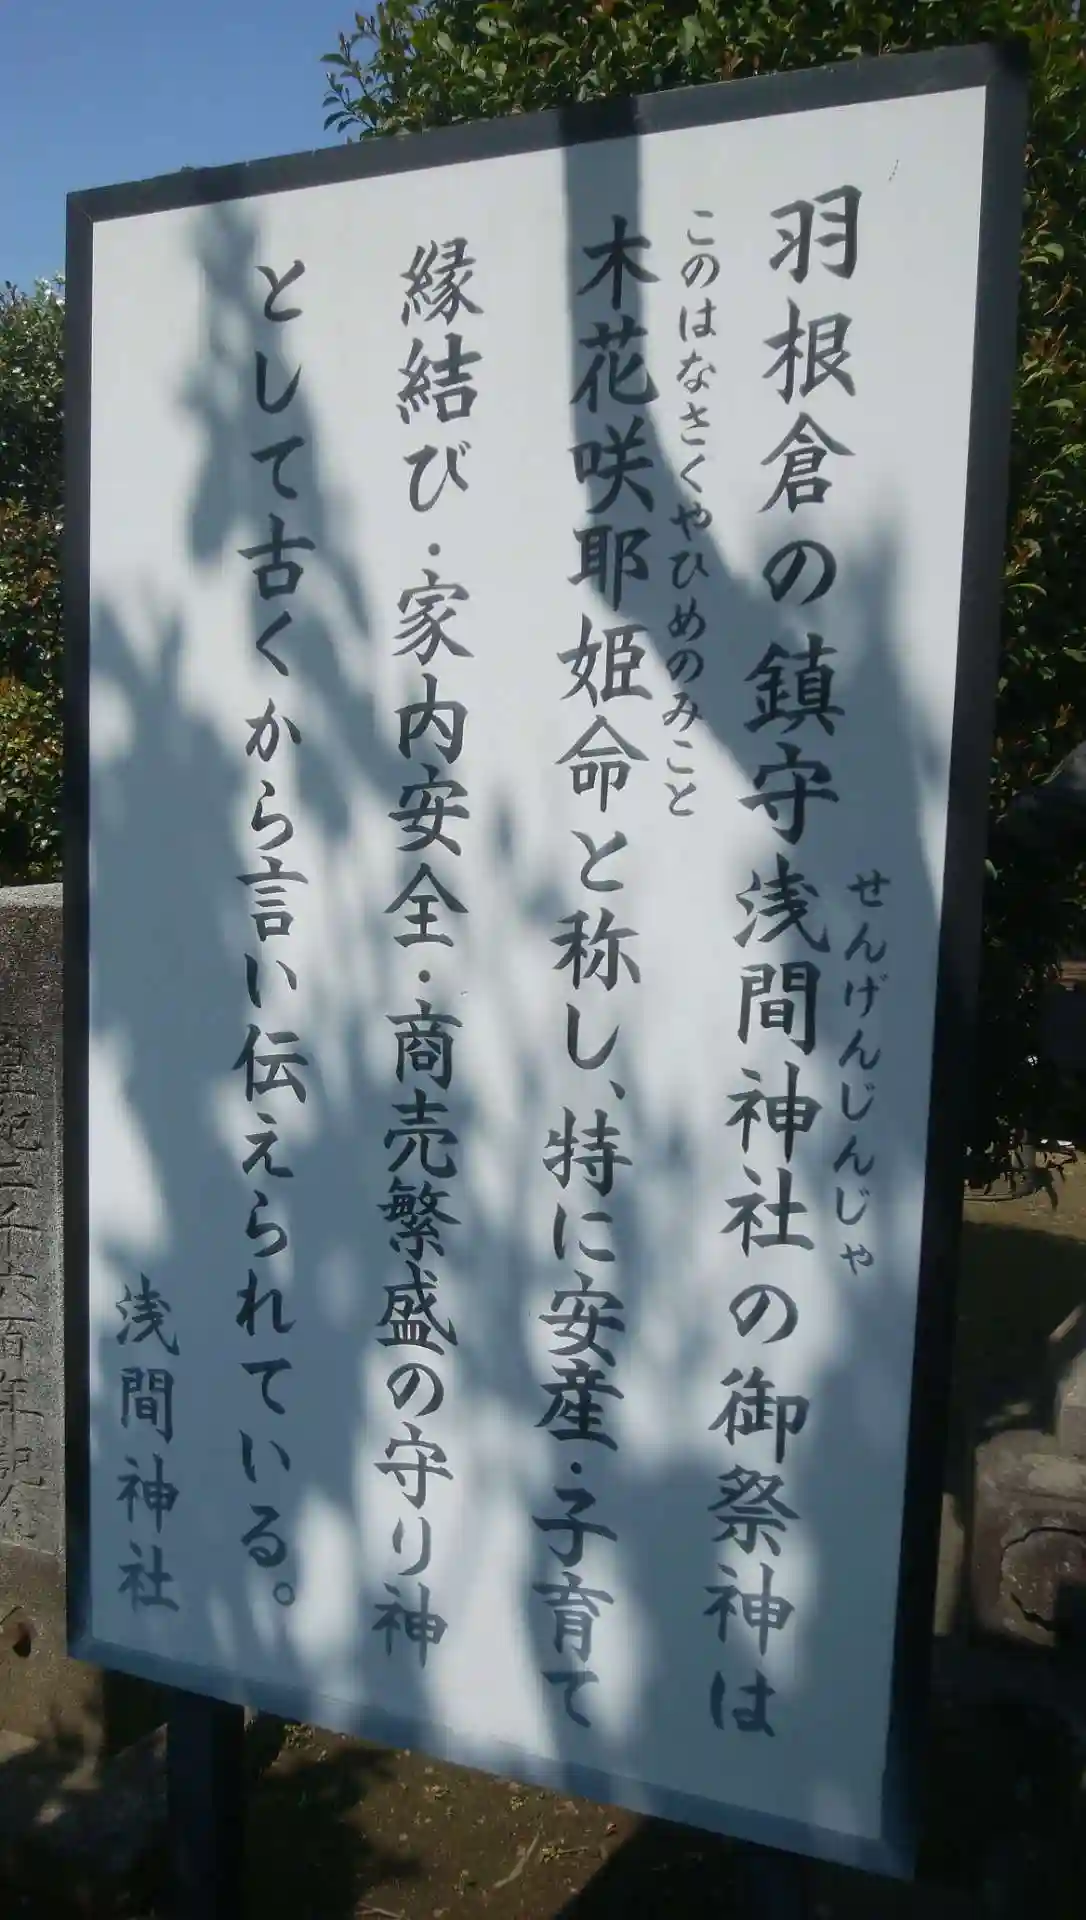 羽根倉の鎮守浅間神社の御祭神は
せんげんじんじゃ
木花咲耶姫命と称し、特に安産・子育て
このはなさくやひめのみこと
縁結び・家内安全・商売繁盛の守り神
として古くから言い伝えられている。
浅間神社